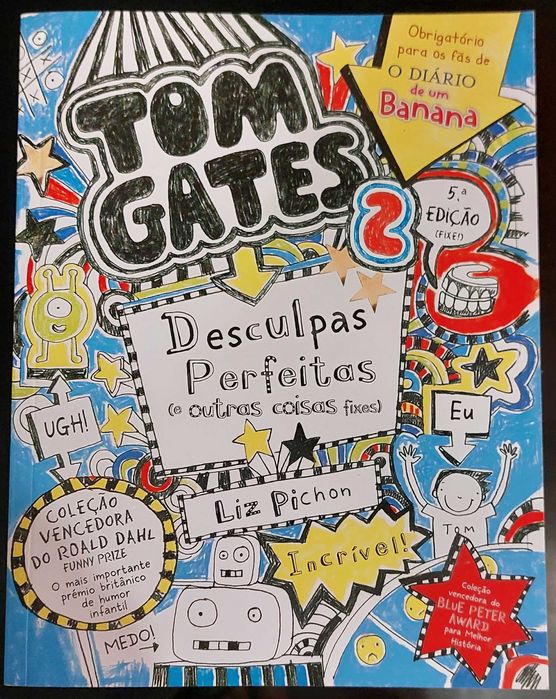 Obrigatório
para os fãs de
O DIÁRIO
de um
Banana
TOM
GATES
2
5.ª
EDIÇÃO
(FIXE!)
Desculpas
Perfeitas
(e outras coisas fixes)
UGH!
Eu
Liz Pichon
TOM
COLEÇÃO
VENCEDORA
DO ROALD DAHL
FUNNY PRIZE
O mais importante
prémio britânico
de humor
infantil
Incrível!
MEDO!
Coleção
vencedora do
BLUE PETER
AWARD
para Melhor
História